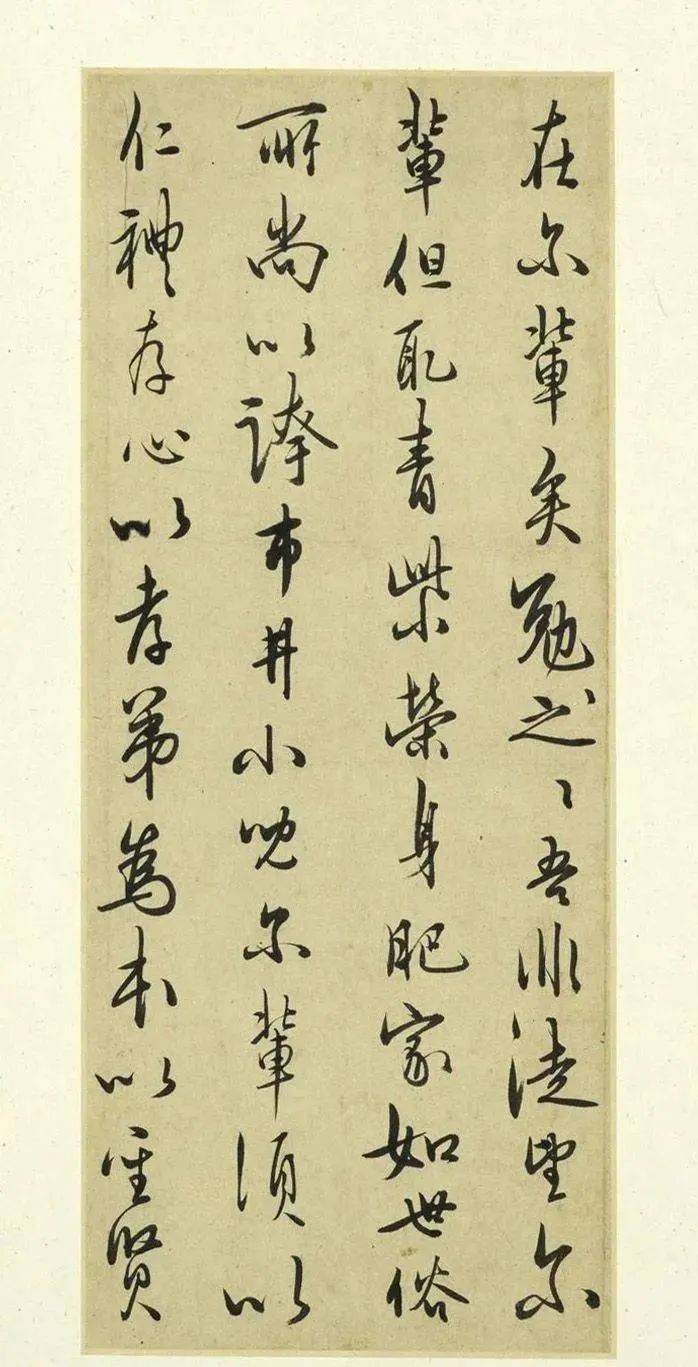 在尔輩矣勉之〻吾非徒望尔
輩但取青紫榮身肥家如世俗
所尚以誇市井小児尔輩須以
仁禮存心以孝弟為本以聖賢